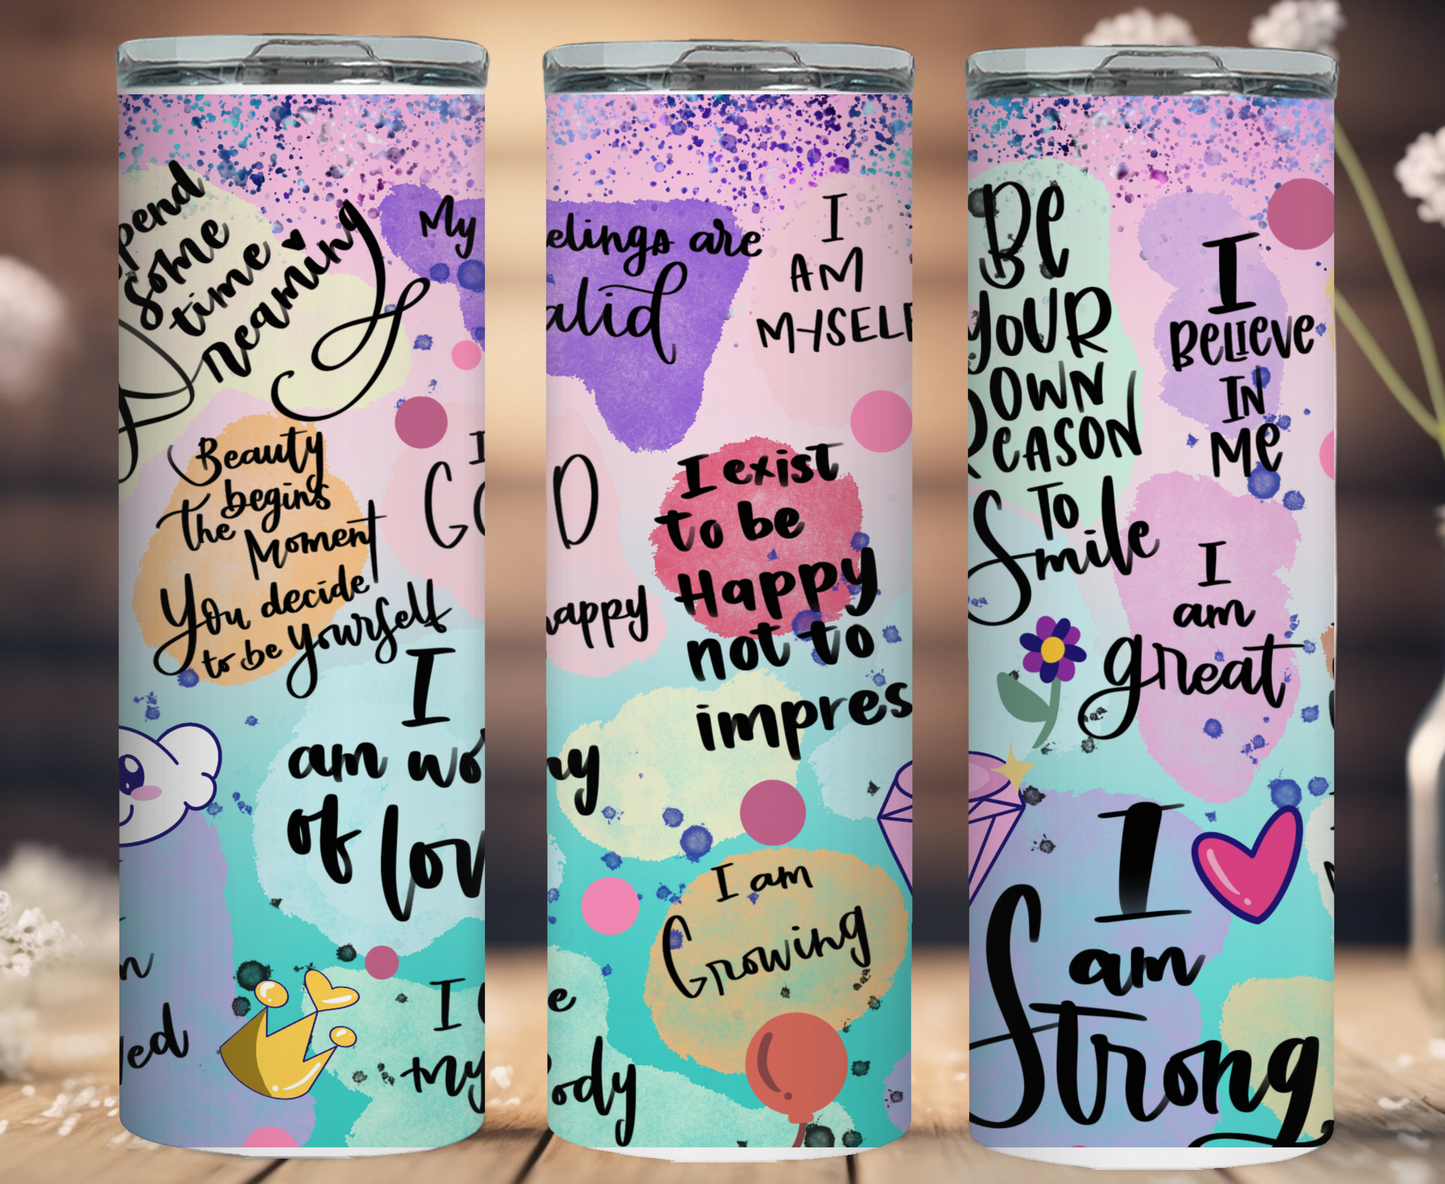 pend
some
time
Dreaming
My
Beauty
begins
the Moment
You decide
to be yourself
I
GO
I
am wo
of lov
n
ved
I
my
eelings are
alid
I
AM
MYSELF
D
happy
I exist
to be
Happy
not to
impres
ny
I am
Growing
e
body
Be
YOUR
OWN
REASON
TO
Smile
I
BELIEVE
IN
ME
I
am
great
I
am
Strong